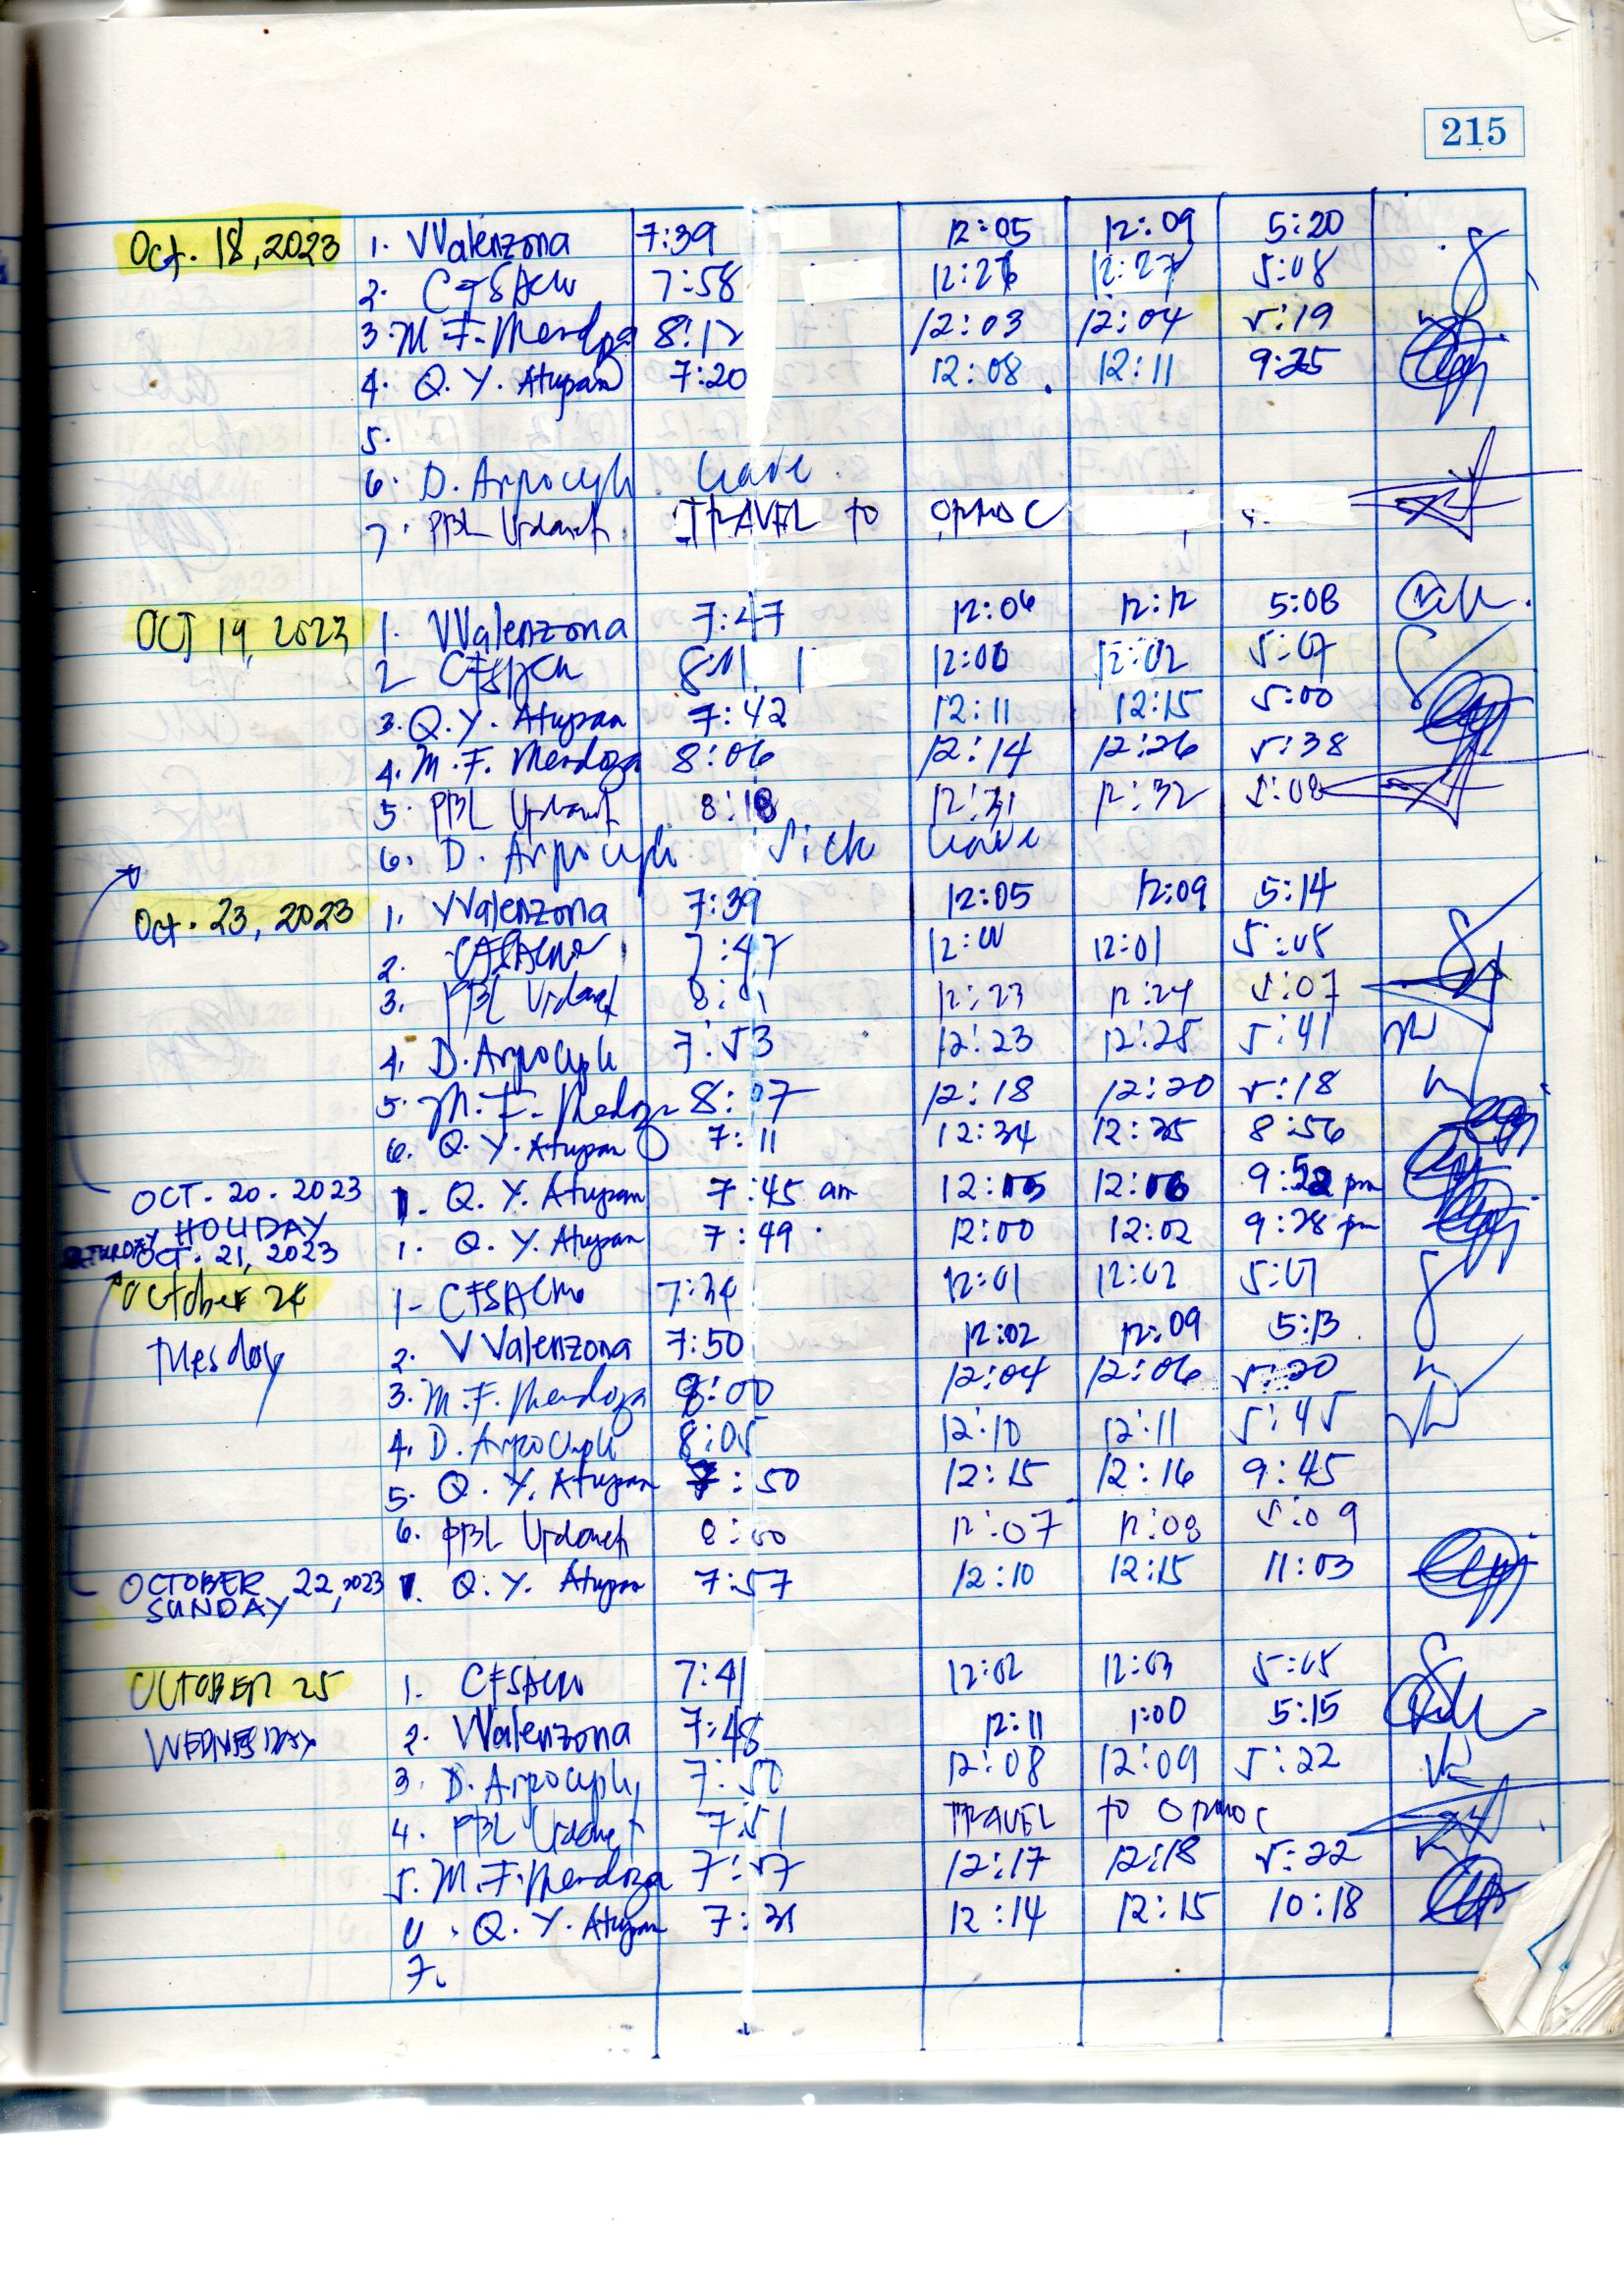 215
Oct. 18, 2023 1. VValenzona 7:39 12:05 12:09 5:20
2. CFSACW 7:58 12:26 12:27 5:08
3. M. F. Mendoza 8:12 12:03 12:04 5:19
4. Q. Y. Atupan 7:20 12:08 12:11 9:25
5.
6. D. Arpocuph leave
7. PBL TRAVEL to ORMOC
OCT 19, 2023 1. VValenzona 7:47 12:06 12:12 5:08
2 8:01 12:00 12:02 5:07
3. Q. Y. Atupan 7:42 12:11 12:15 5:00
4. M. F. Mendoza 8:06 12:14 12:26 5:38
5. PBL 8:18 12:31 12:32 5:08
6. D. Sick leave
Oct. 23, 2023 1. VValenzona 7:39 12:05 12:09 5:14
2. 7:47 12:00 12:01 5:05
3. PBL 8:01 12:23 12:24 5:07
4. D. 7:53 12:23 12:25 5:41
5. M. F. Mendoza 8:07 12:18 12:20 5:18
6. Q. Y. Atupan 7:11 12:34 12:35 8:56
OCT. 20. 2023 1. Q. Y. Atupan 7:45 am 12:05 12:06 9:52 pm
HOLIDAY
OCT. 21, 2023 1. Q. Y. Atupan 7:49 12:00 12:02 9:28 pm
October 24 1- 7:34 12:01 12:02 5:07
Tuesday 2. V Valenzona 7:50 12:02 12:09 5:13
3. M. F. Mendoza 8:00 12:04 12:06 5:20
4. D. 8:05 12:10 12:11 5:45
5. Q. Y. Atupan 7:50 12:15 12:16 9:45
6. PBL 8:00 12:07 12:08 5:09
OCTOBER 22, 2023 1. Q. Y. Atupan 7:57 12:10 12:15 11:03
SUNDAY
OCTOBER 25 1. 7:41 12:02 12:03 5:05
WEDNESDAY 2. VValenzona 7:48 12:11 1:00 5:15
3. D. 7:50 12:08 12:09 5:22
4. PBL 7:51 TRAVEL to ORMOC
5. M. F. Mendoza 7:57 12:17 12:18 5:22
6. Q. Y. Atupan 7:31 12:14 12:15 10:18
7.